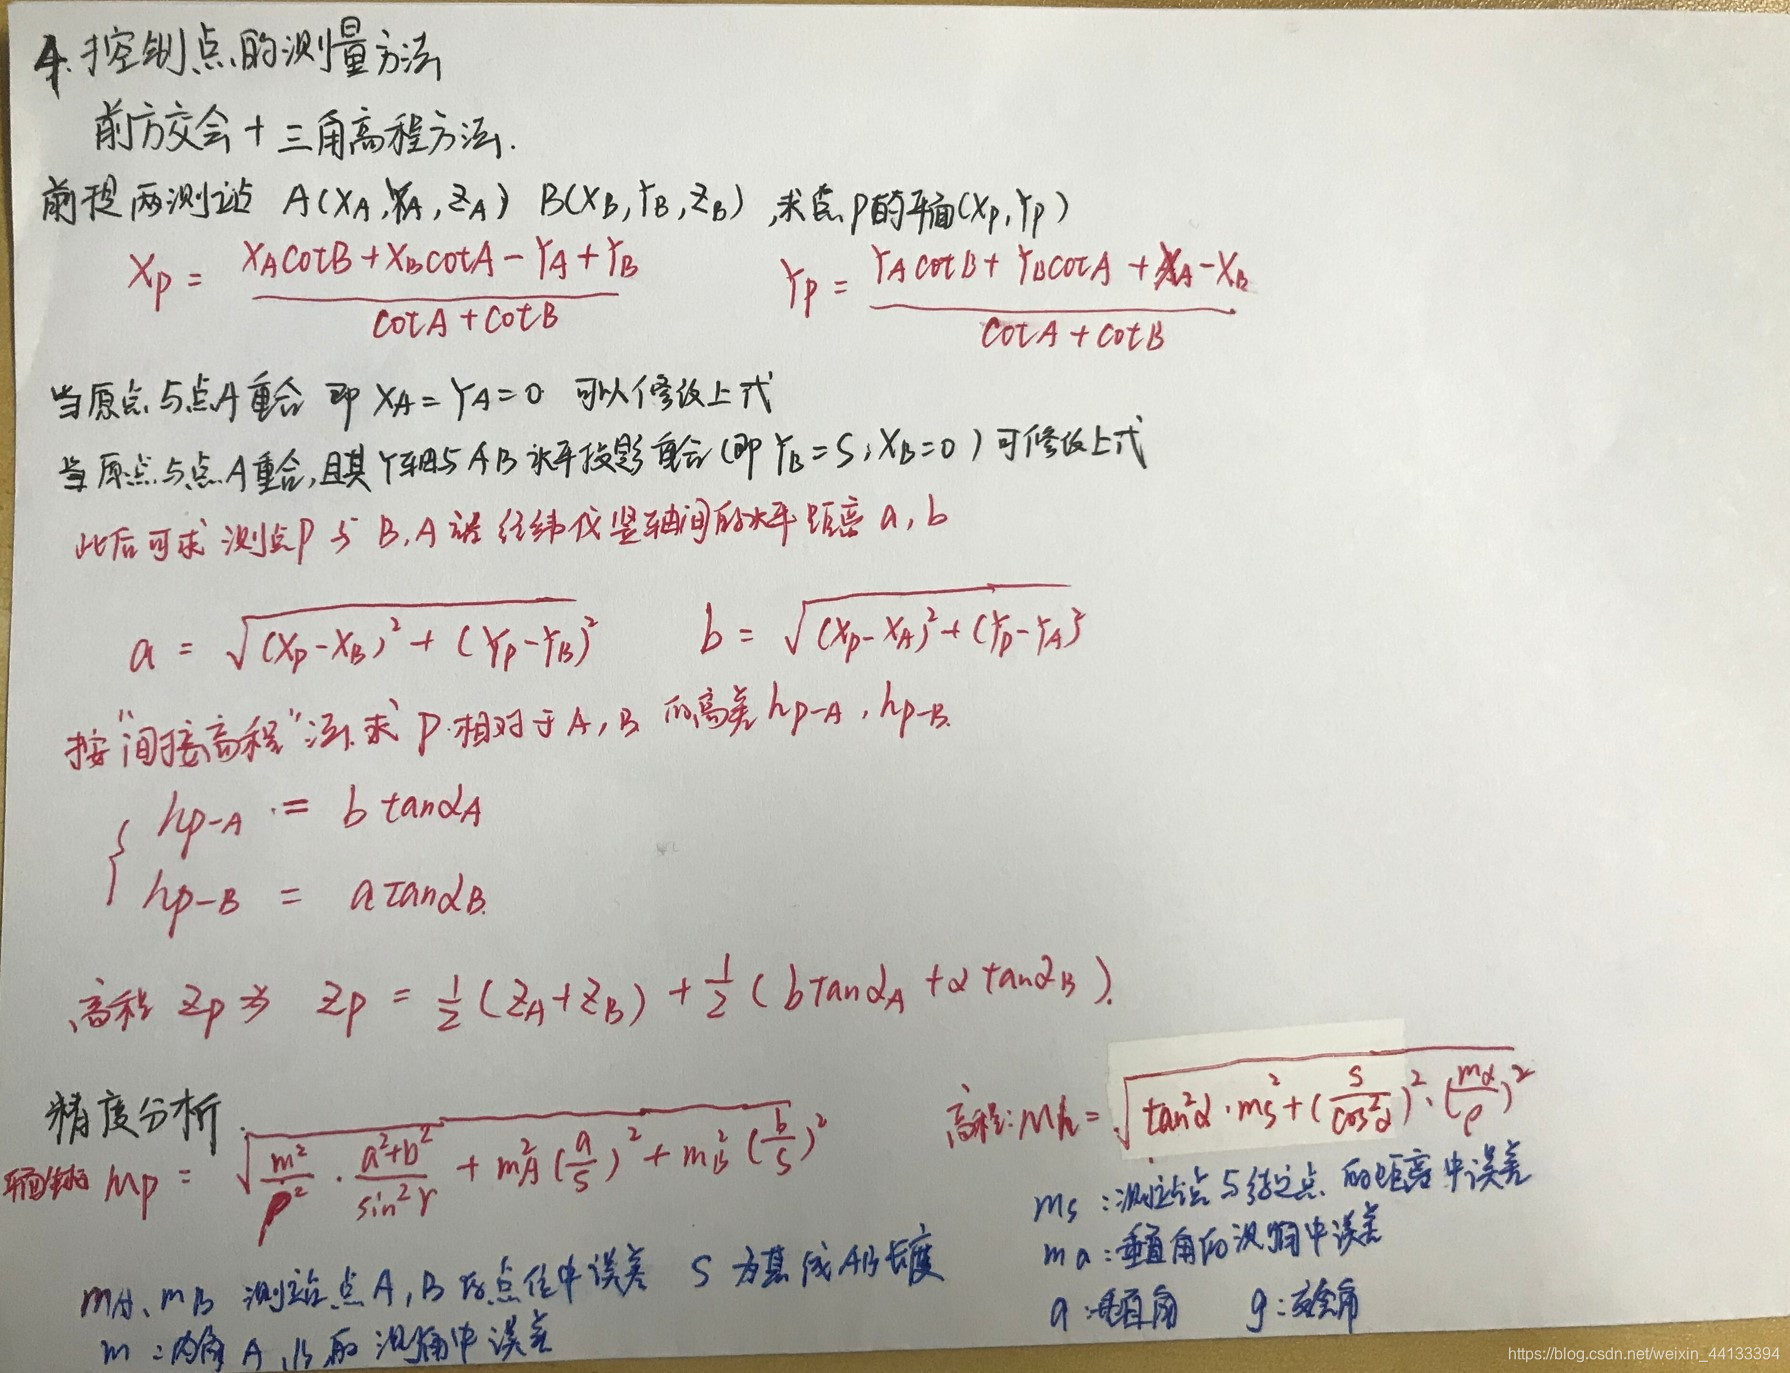 4.控制点的测量方法
前方交会+三角高程方法.
前提两测站 A(XA,YA,ZA) B(XB,YB,ZB),求点P的平面(Xp,Yp)
Xp = (XAcotB+XBcotA-YA+YB)/(cotA+cotB) Yp = (YAcotB+YBcotA+XA-XB)/(cotA+cotB)
当原点与点A重合 即 XA=YA=0 可以修改上式
当原点与点A重合,且其Y轴与AB水平投影重合(即YB=S,XB=0)可修改上式
此后可求测点P与B,A诸经纬仪竖轴间的水平距离a,b
a = √((Xp-XB)²+(Yp-YB)²) b = √((Xp-XA)²+(Yp-YA)²)
按"间接高程"法求P相对于A,B的高差hp-A,hp-B.
hp-A = b tanαA
hp-B = a tanαB.
高程Zp为 Zp = 1/2(ZA+ZB)+1/2(b tanαA+α tanαB).
精度分析
平面坐标 mp = √(m²/ρ²·(a²+b²)/sin²r+mA²(a/S)²+mB²(b/S)²)
高程:Mh = √(tan²α·ms²+(S/cos²α)²·(mα/ρ)²)
mA、mB 测站点A,B的点位中误差 S为基线AB长度
m:内角A,B的观测中误差
ms:测站点与待定点的距离中误差
ma:垂直角的观测中误差
a:垂直角 g:交会角
https://blog.csdn.net/weixin_44133394